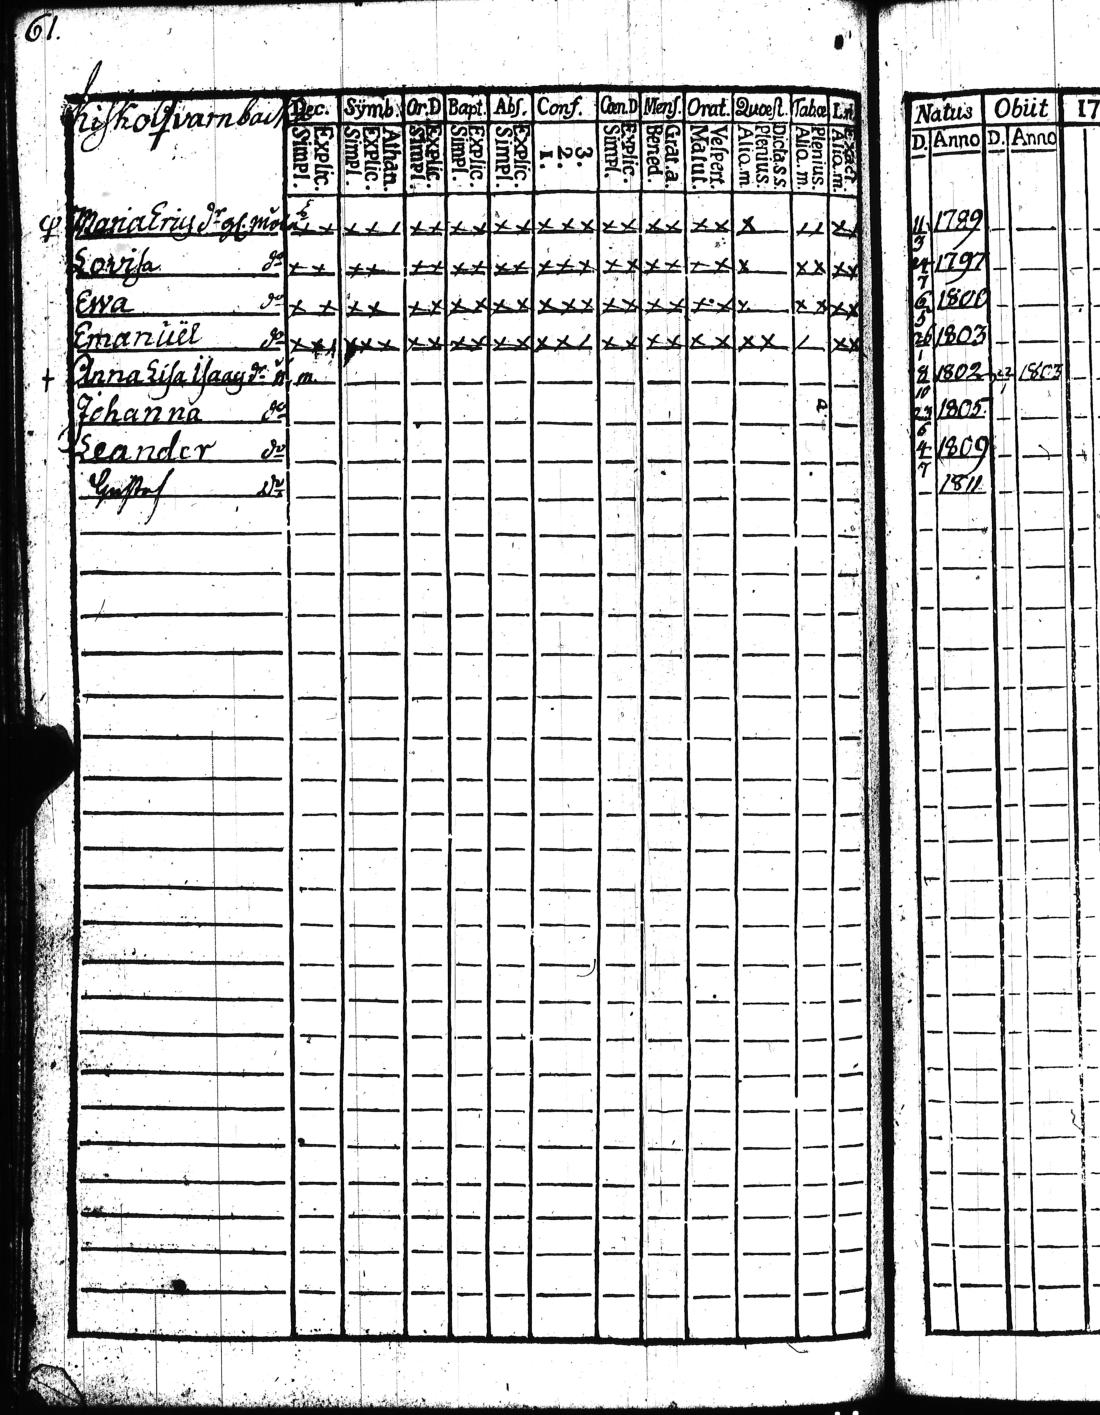 61.
Dec. Sÿmb. Or.D Bapt. Abs. Conf. Cœn.D Mens. Orat. Quœst. Tabœ
Simpl. Explic. Simpl. Explic. Athan. Simpl. Explic. Simpl. Explic. Simpl. Explic. 1. 2. 3. Simpl. Explic. Bened. Grat.a. Matut. Vespert. Alio.m. Plenius. Dicta s.s. Alio.m. Plenius. Alio.m. Exact.
Natus Obiit 17
D. Anno D. Anno
Maria Eric dr 11/3 1789
Lovisa do x x x x x x x x x x x x x x x x x x x x x x 24/7 1797
Ewa do x x x x x x x x x x x x x x x x x x x x x x 6/5 1800
Emanuel do 26/1 1803
† Anna Lisa Isaac dr m. 8/10 1802 22/1 1803
Johanna do 23/6 1805
Leander do 4/7 1809
Gustaf do 1811